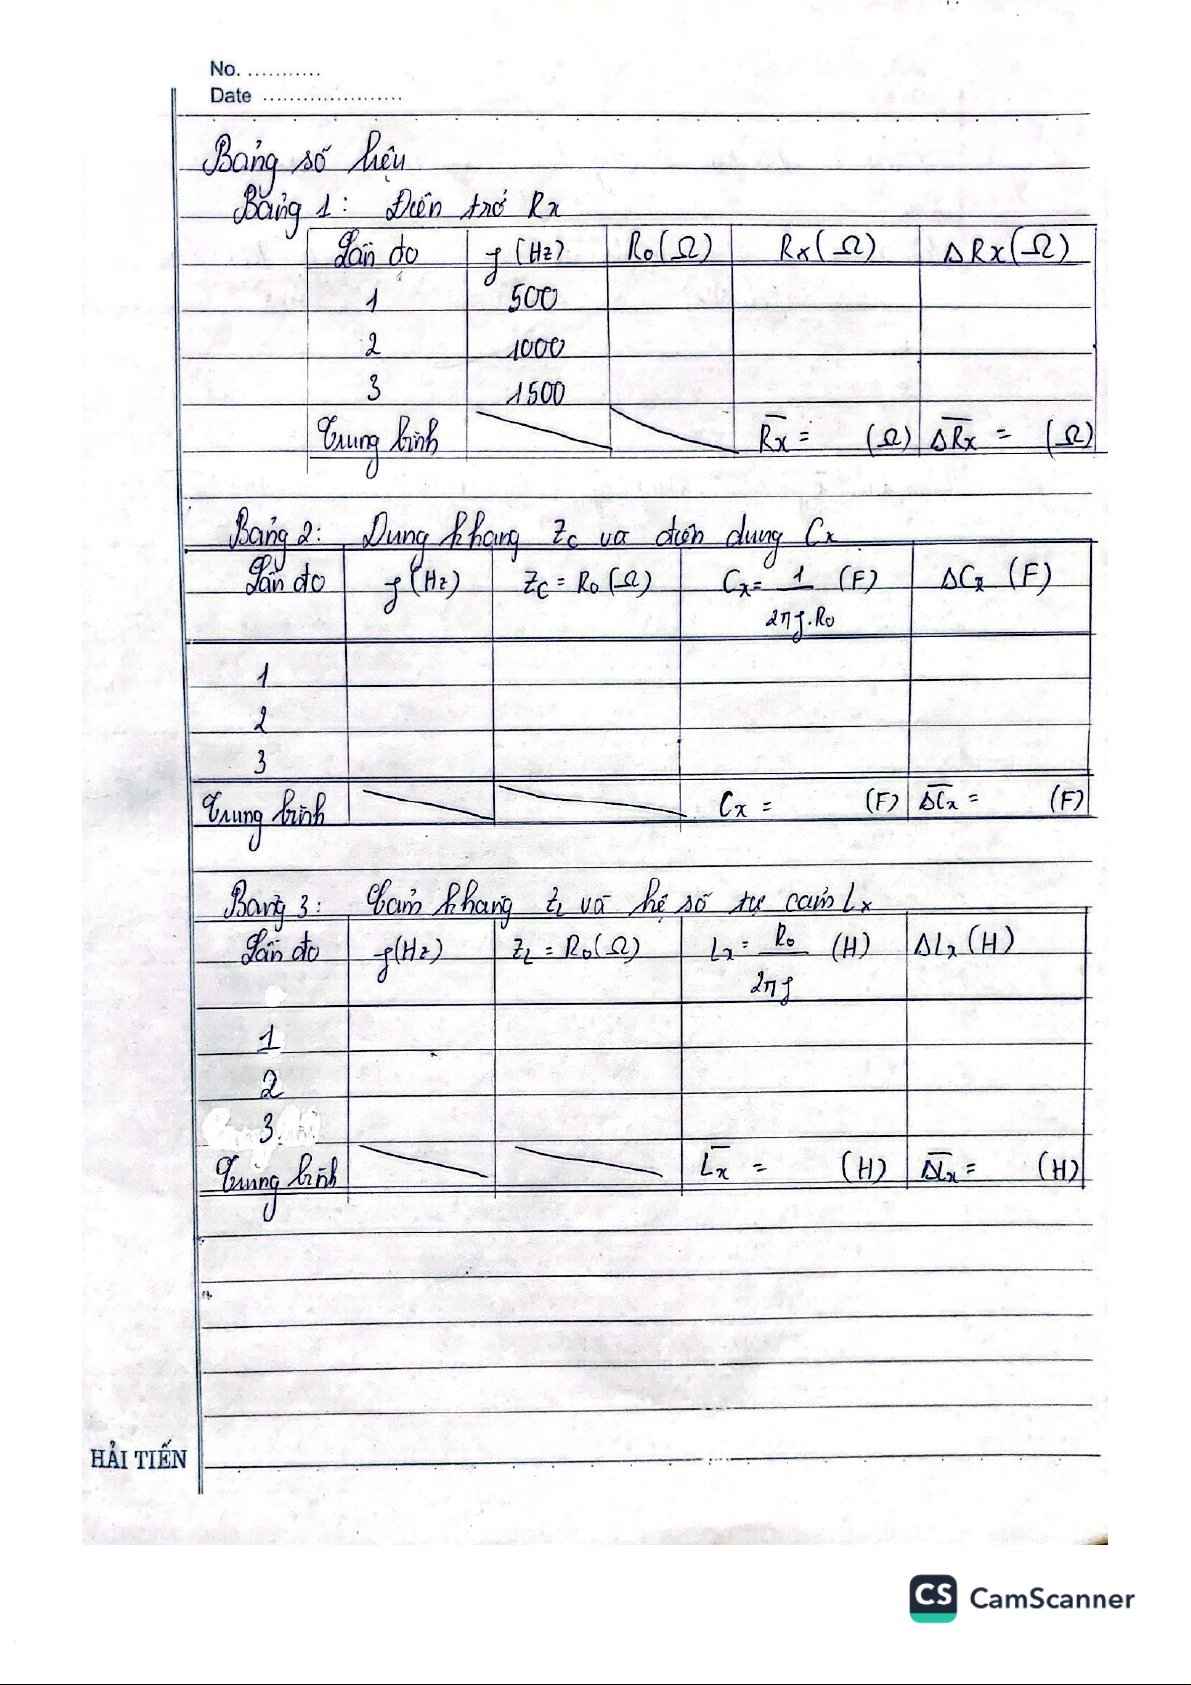 No. ...........
Date .....................
Bảng số liệu
Bảng 1: Điện trở Rx
Lần đo f (Hz) R₀(Ω) Rx(Ω) ΔRx(Ω)
1 500
2 1000
3 1500
Trung bình R̅x̅ = (Ω) ΔR̅x̅ = (Ω)
Bảng 2: Dung kháng Zc và điện dung Cx
Lần đo f (Hz) Zc = R₀ (Ω) Cx = 1 (F) ΔCx (F)
2πf.R₀
1
2
3
Trung bình Cx = (F) ΔC̅x̅ = (F)
Bảng 3: Cảm kháng ZL và hệ số tự cảm Lx
Lần đo f(Hz) ZL = R₀(Ω) Lx = R₀ (H) ΔLx (H)
2πf
1
2
3
Trung bình L̅x̅ = (H) ΔL̅x̅ = (H)
HẢI TIẾN
CS CamScanner